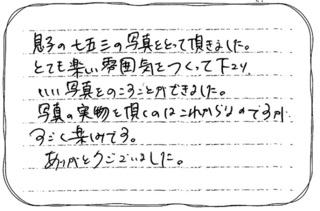 息子の七五三の写真をとって頂きました。
とても楽しい雰囲気をつくって下さり、
いい写真をのこすことができました。
写真の実物を頂くのはこれからなのですが
すごく楽しみです。
ありがとうございました。